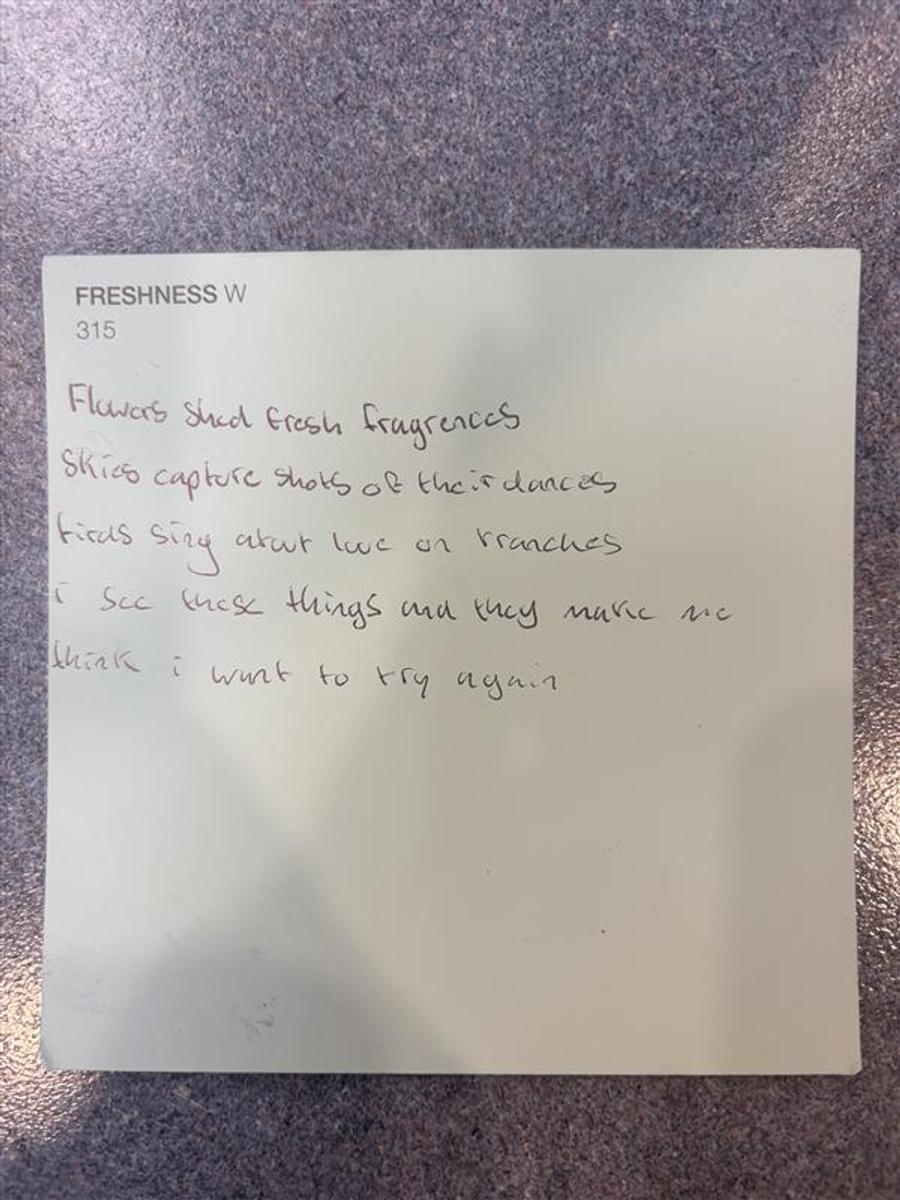 FRESHNESS W
315
Flowers shed fresh fragrences
Skies capture shots of their dances
birds sing about love on branches
i see these things and they make me
think i want to try again